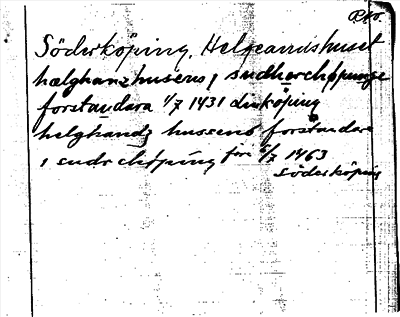 Söderköping, Helgeandshuset
hælghanzhusens i sudherchøpunge
forstandara 1/7 1431 Linköping
helghandz hussens forstandare
i sudrchøping före 6/7 1463
Söderköping